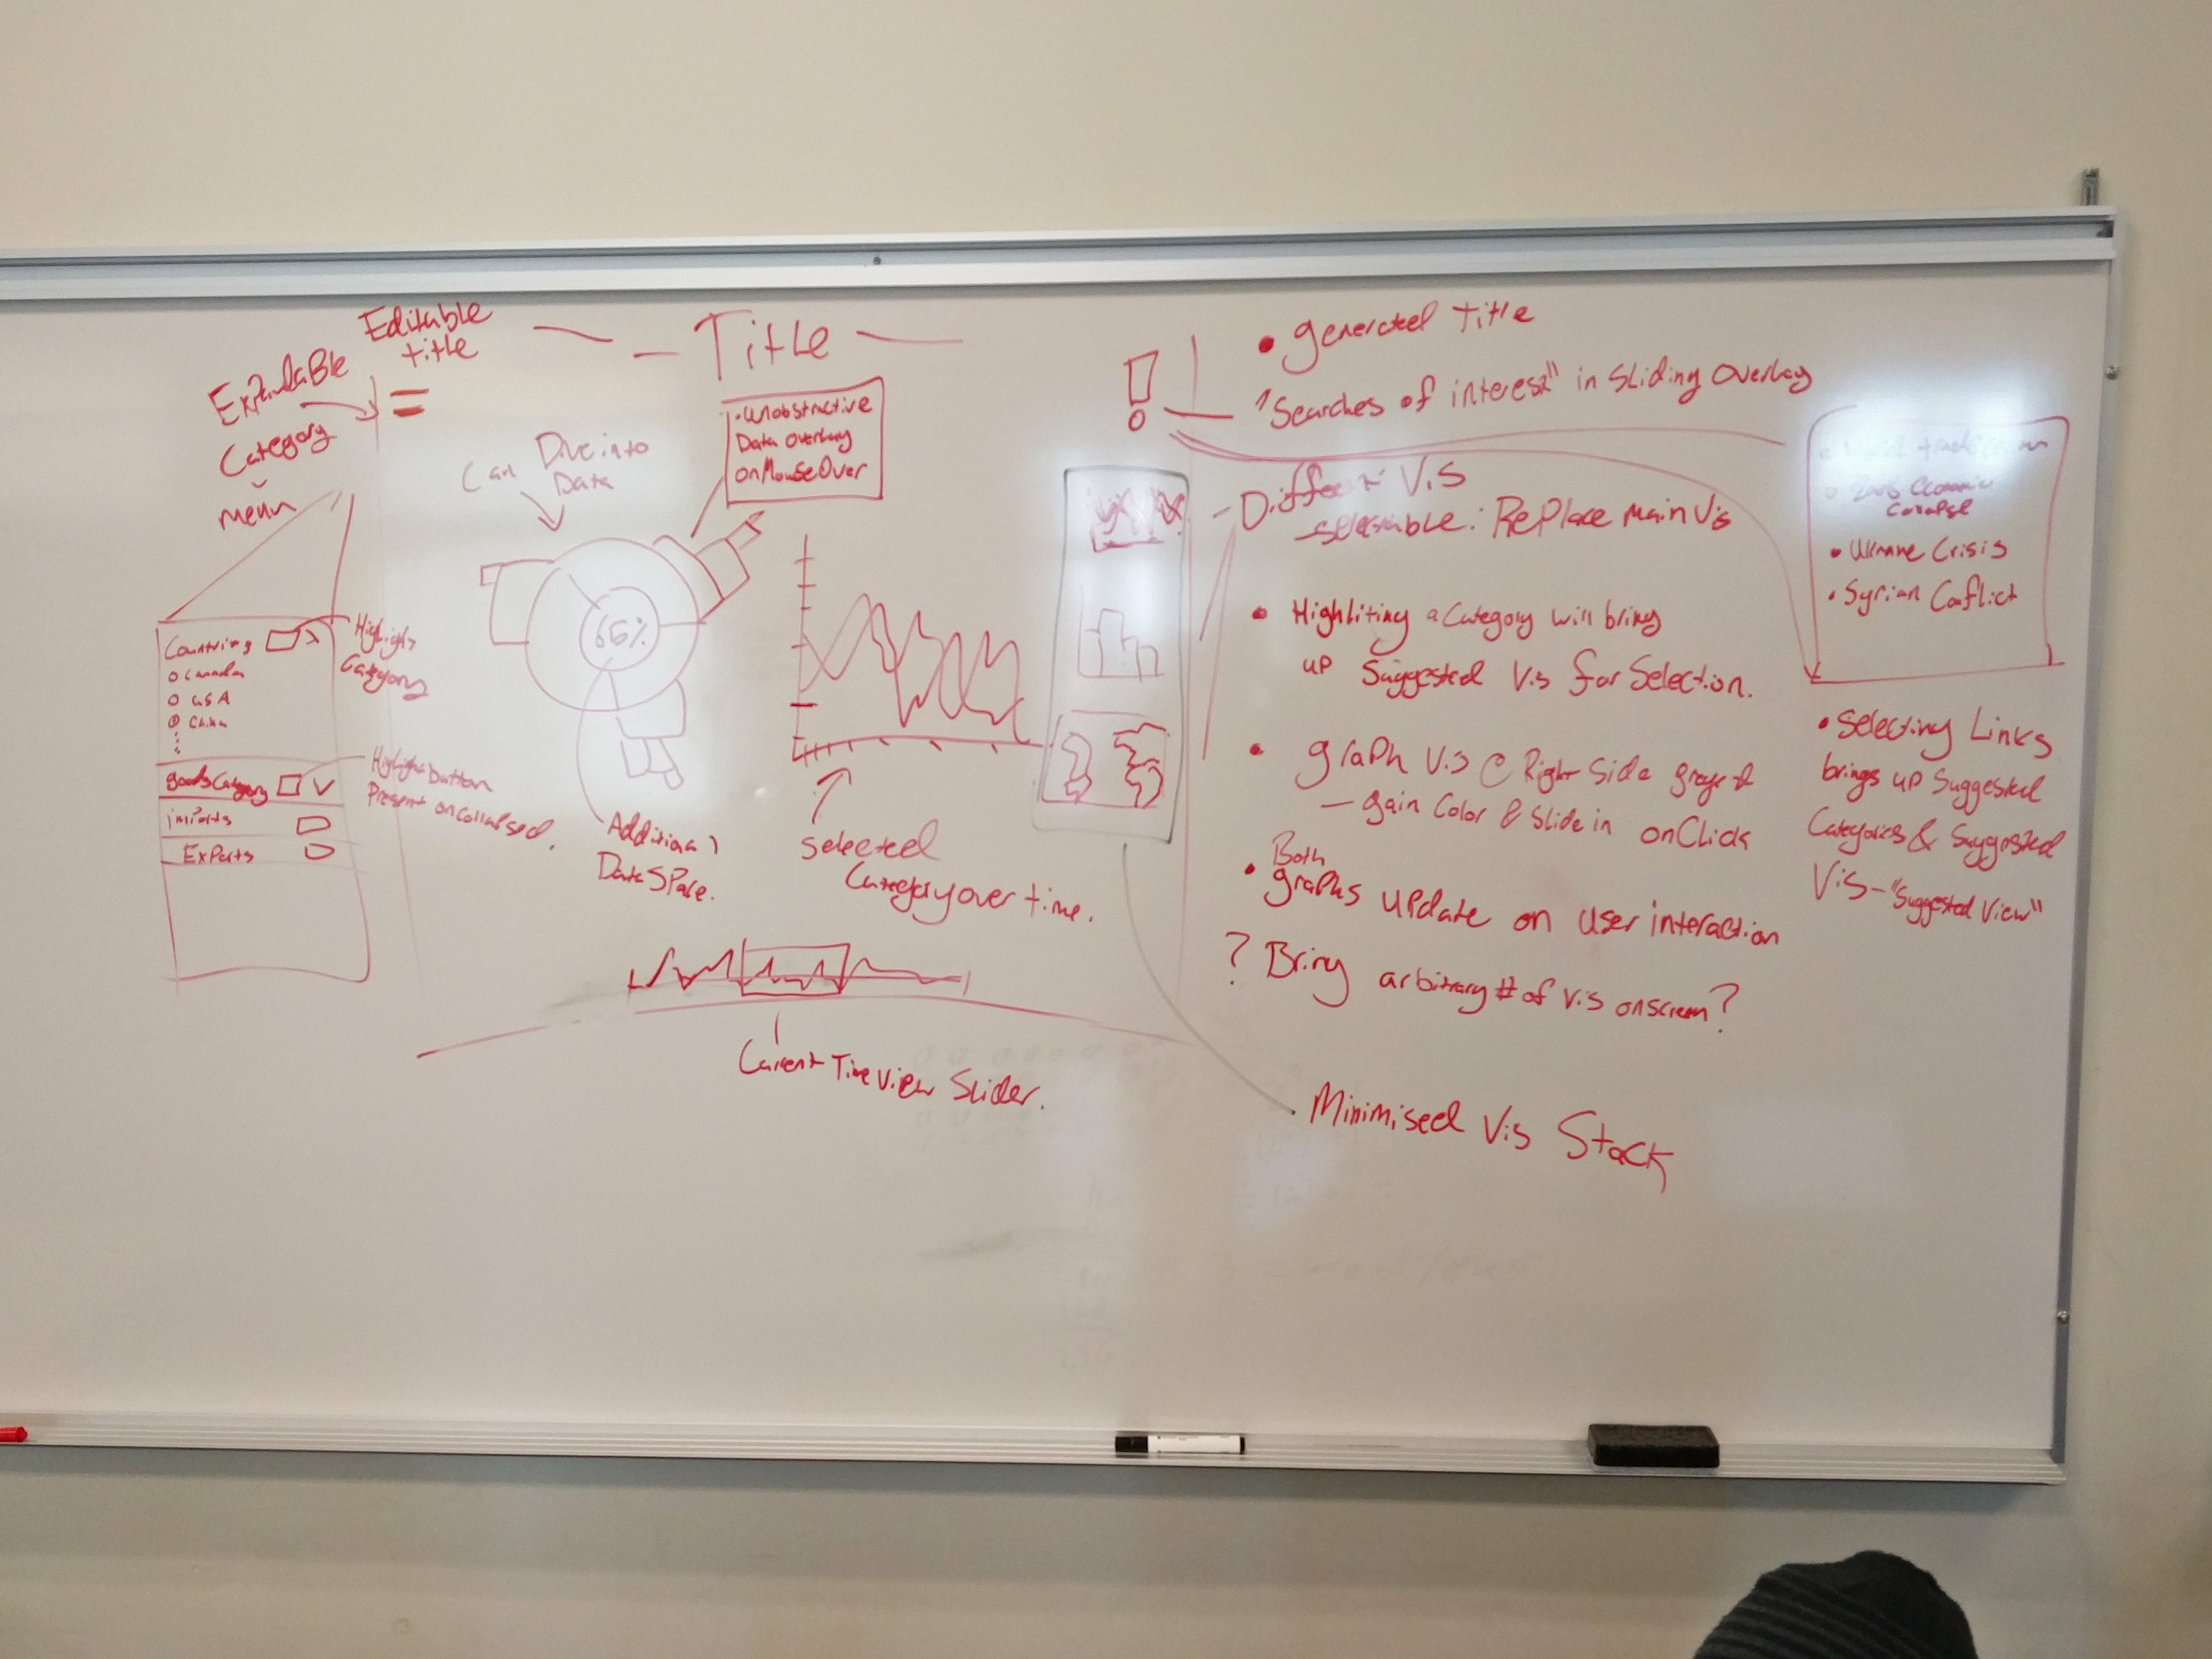 Editable
title
Title
Expandable
Category
menu
Can Dive into
Data
• Unobstructive
Data Overlay
onMouseOver
65%
Countries
Canada
USA
China
Highlight
Category
goods Category
imports
Exports
Highlight button
Present on collapsed.
Additional
Data Space.
Selected
Category over time.
Current Time View Slider.
!
• generated title
"Searches of interest" in Sliding Overlay
- Different Vis
- selectable: Replace main Vis
• Highliting a Category will bring
up Suggested Vis for Selection.
• graph Vis @ Right Side greyed
- gain Color & Slide in onClick
• Both
graphs update on user interaction
? Bring arbitrary # of vis onscreen?
Minimised Vis Stack
2008 Economic
Collapse
• Ukraine Crisis
• Syrian Conflict
• Selecting Links
brings up Suggested
Categories & Suggested
Vis - "Suggested View"